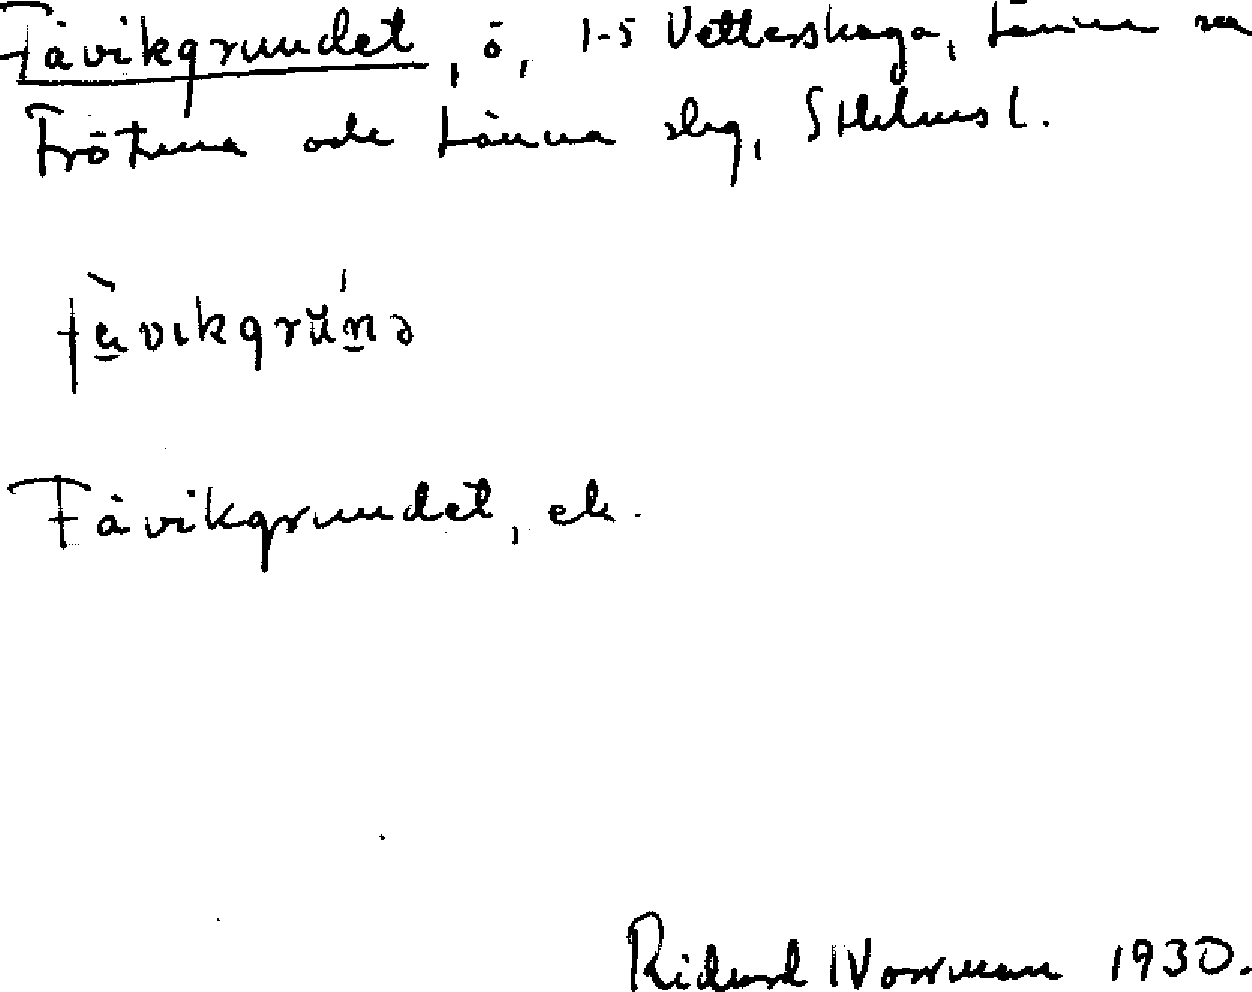 Fåvikgrundet, ö, 1-5 Vettershaga, Länna sn
Frötuna och Länna slg, Sthlms l.
fåvikgrŭnə
Fåvikgrundet, ek.
Richard Norrman 1930.